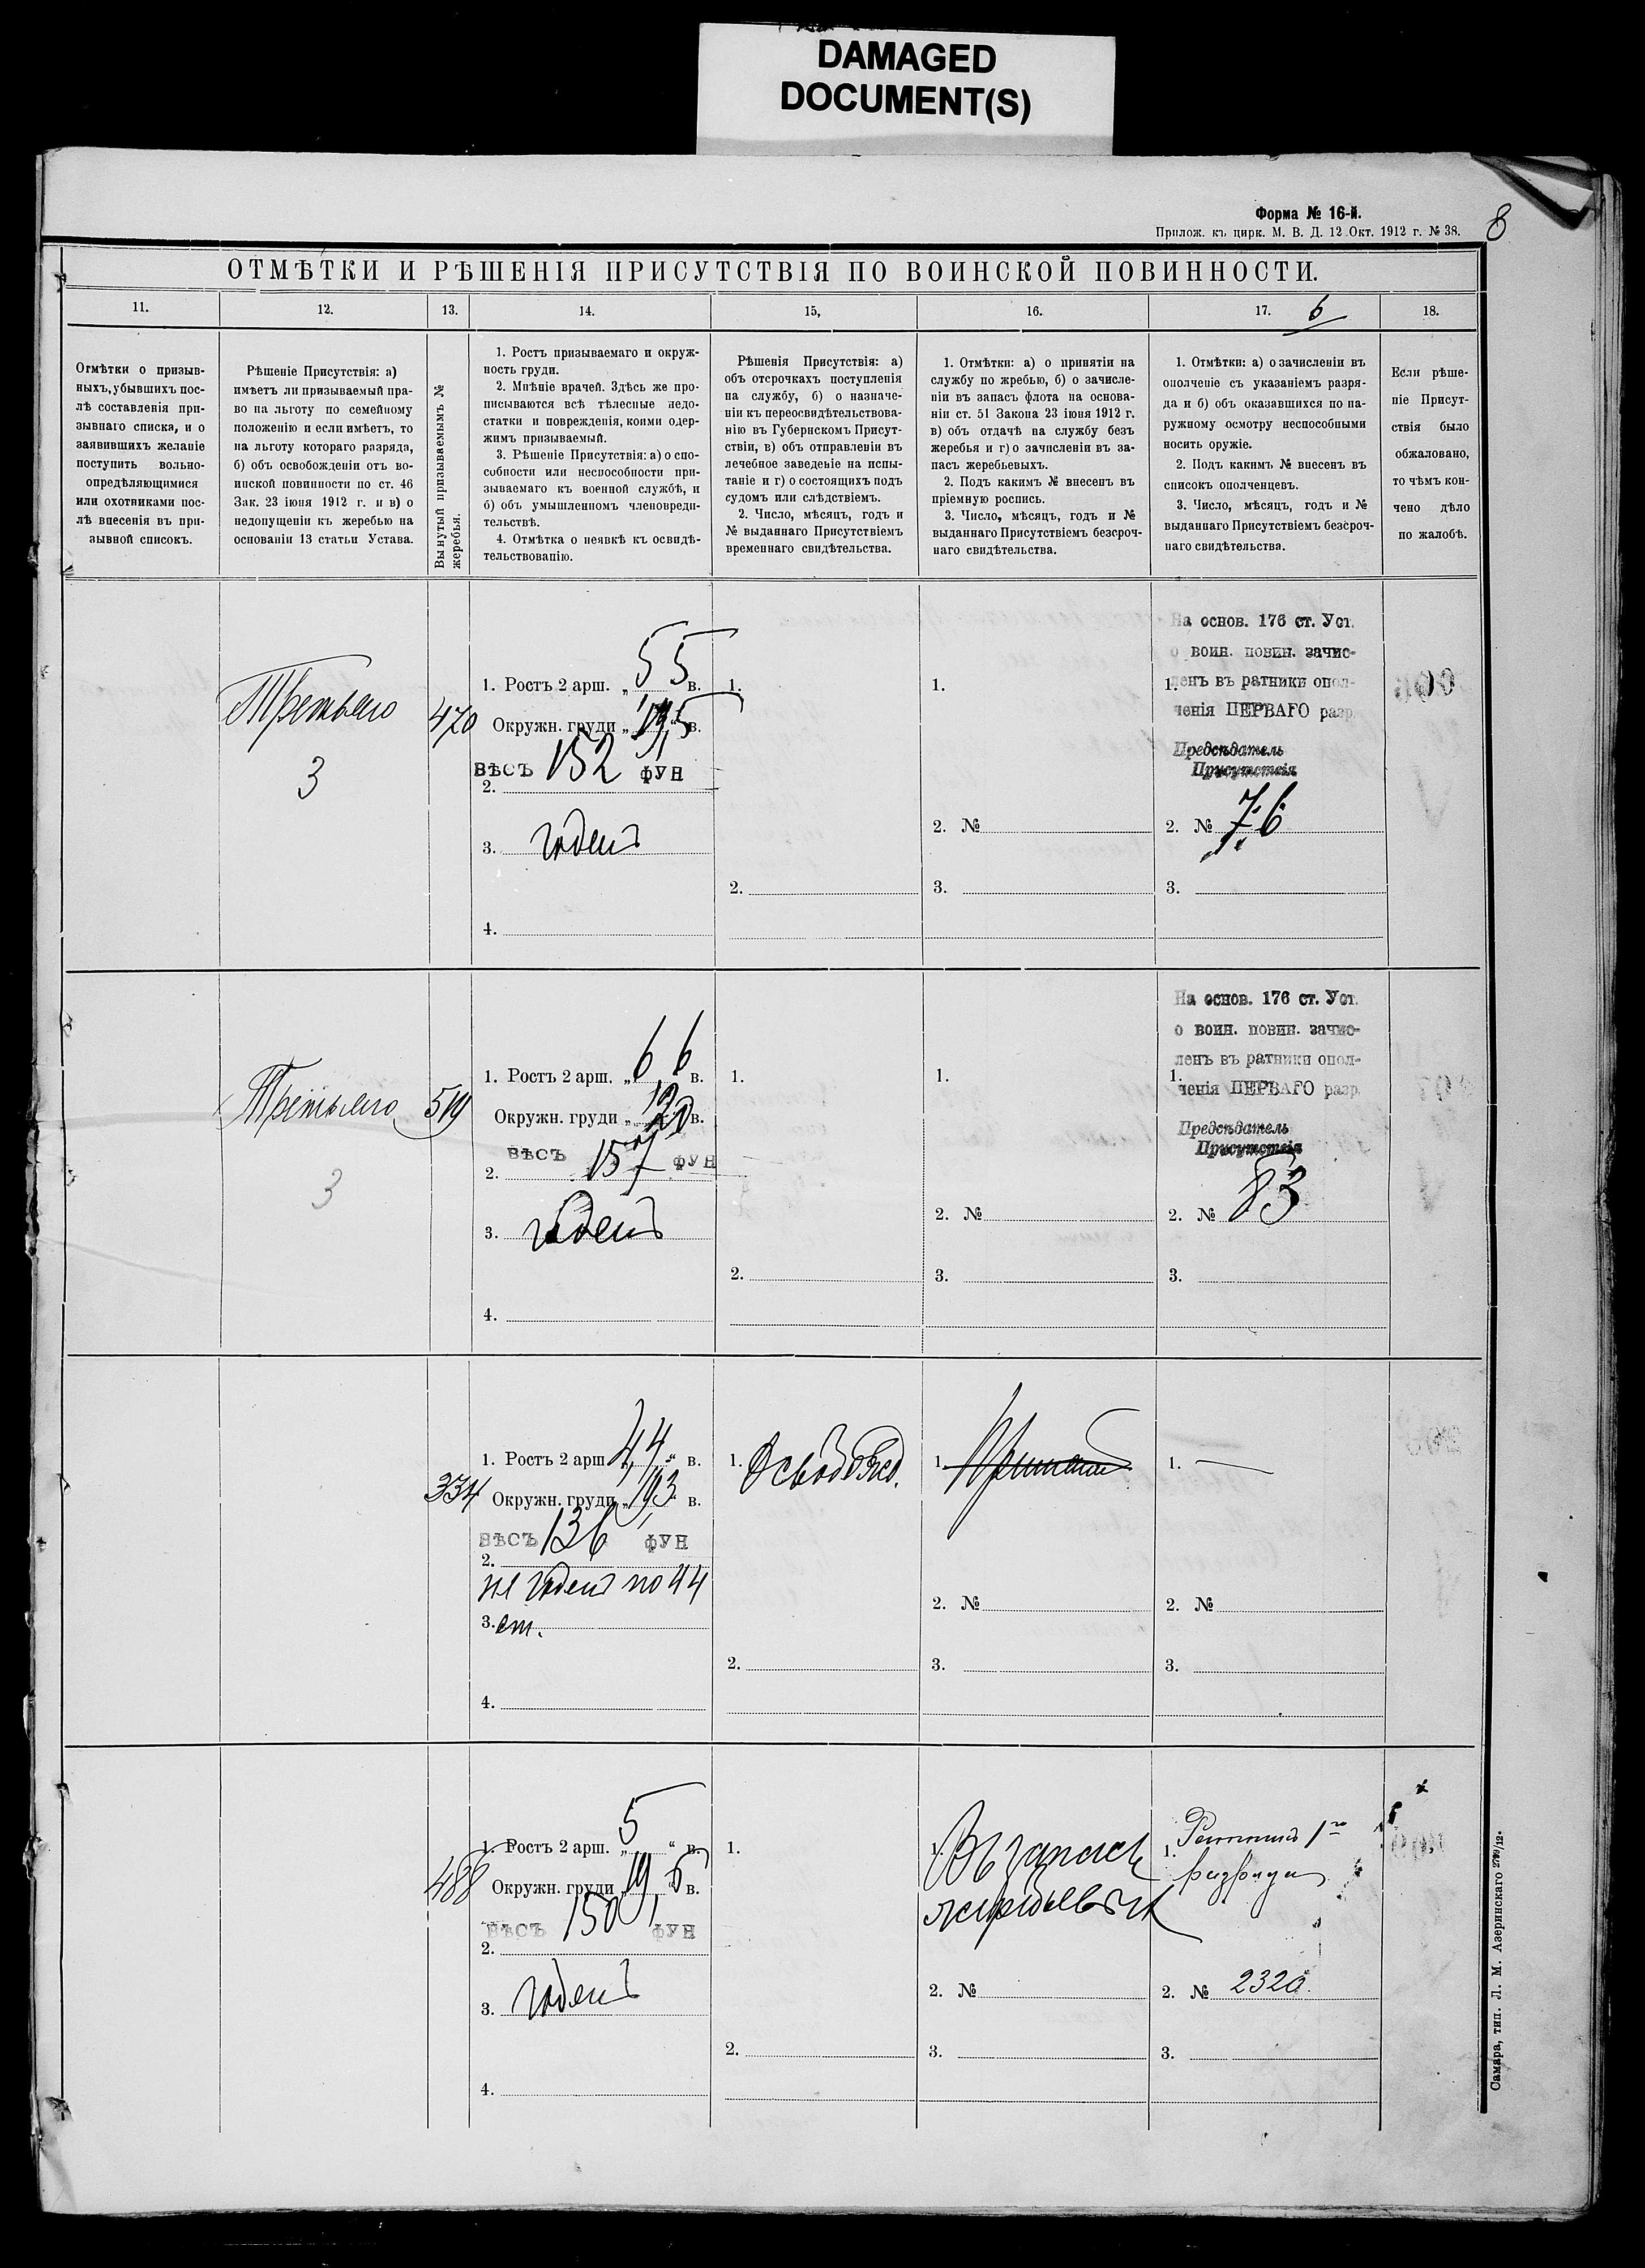 DAMAGED
DOCUMENT(S)
Форма № 16-й.
Прилож. къ цирк. М. В. Д. 12 Окт. 1912 г. № 38.
8
ОТМѢТКИ И РѢШЕНІЯ ПРИСУТСТВІЯ ПО ВОИНСКОЙ ПОВИННОСТИ.
11.
12.
13.
14.
15,
16.
17. 6
18.
Отмѣтки о призыв-
ныхъ, убывшихъ пос-
лѣ составленія при-
зывнаго списка, и о
заявившихъ желаніе
поступить вольно-
опредѣляющимися
или охотниками пос-
лѣ внесенія въ при-
зывной списокъ.
Рѣшеніе Присутствія: а)
имѣетъ ли призываемый пра-
во на льготу по семейному
положенію и если имѣетъ, то
на льготу котораго разряда,
б) объ освобожденіи отъ во-
инской повинности по ст. 46
Зак. 23 іюня 1912 г. и в) о
недопущеніи къ жеребью на
основаніи 13 статьи Устава.
Вынутый призываемымъ №
жеребья.
1. Ростъ призываемаго и окруж-
ность груди.
2. Мнѣніе врачей. Здѣсь же про-
писываются всѣ тѣлесные недо-
статки и поврежденія, коими одер-
жимъ призываемый.
3. Рѣшеніе Присутствія: а) о спо-
собности или неспособности при-
зываемаго къ военной службѣ, и
б) объ умышленномъ членовреди-
тельствѣ.
4. Отмѣтка о неявкѣ къ освидѣ-
тельствованію.
Рѣшенія Присутствія: а)
объ отсрочкахъ поступленія
на службу, б) о назначе-
ніи къ переосвидѣтельствова-
нію въ Губернскомъ Присут-
ствіи, в) объ отправленіи въ
лечебное заведеніе на испы-
таніе и г) о состоящихъ подъ
судомъ или слѣдствіемъ.
2. Число, мѣсяцъ, годъ и
№ выданнаго Присутствіемъ
временнаго свидѣтельства.
1. Отмѣтки: а) о принятіи на
службу по жребью, б) о зачисле-
ніи въ запасъ флота на основа-
ніи ст. 51 Закона 23 іюня 1912 г.
в) объ отдачѣ на службу безъ
жеребья и г) о зачисленіи въ за-
пасъ жеребьевыхъ.
2. Подъ какимъ № внесенъ въ
пріемную роспись.
3. Число, мѣсяцъ, годъ и №
выданнаго Присутствіемъ безсроч-
наго свидѣтельства.
1. Отмѣтки: а) о зачисленіи въ
ополченіе съ указаніемъ разря-
да и б) объ оказавшихся по на-
ружному осмотру неспособными
носить оружіе.
2. Подъ какимъ № внесенъ въ
списокъ ополченцевъ.
3. Число, мѣсяцъ, годъ и №
выданнаго Присутствіемъ безсроч-
наго свидѣтельства.
Если рѣше-
ніе Присут-
ствія было
обжаловано,
то чѣмъ кон-
чено дѣло
по жалобѣ.
Третьяго
3
470
1. Ростъ 2 арш. „ 5 5 в.
Окружн. груди „ 19,5 в.
ВѢСЪ 152 ФУН
2.
3. годенъ
4.
1.
2.
1.
2. №
3.
На основ. 176 ст. Уст.
о воин. повин. зачис-
1. ленъ въ ратники опол-
ченія ПЕРВАГО разр.
Предсѣдатель
Присутствія
2. № 76
3.
Третьяго
3
519
1. Ростъ 2 арш. „ 6 6 в.
Окружн. груди „ 20 в.
ВѢСЪ 157 ФУН
2.
3. годенъ
4.
1.
2.
1.
2. №
3.
На основ. 176 ст. Уст.
о воин. повин. зачис-
ленъ въ ратники опол-
1. ченія ПЕРВАГО разр.
Предсѣдатель
Присутствія
2. № 83
3.
334
1. Ростъ 2 арш 4,4 “ в.
Окружн. груди „ 19,3 в.
ВѢСЪ 136 ФУН
2.
не годенъ по 44
3. ст.
4.
1. Освобожд.
2.
1. Принятъ
2. №
3.
1. —
2. №
3.
488
1. Ростъ 2 арш. „ 5 “ в.
Окружн. груди „ 19,6 в.
ВѢСЪ 150 ФУН
2.
3. годенъ
4.
1.
2.
1. Въ запасъ
жеребьевыхъ
2. №
3.
Ратникъ 1го
1. разряда
2. № 2320.
3.
Самара, тип. Л. М. Азеринскаго